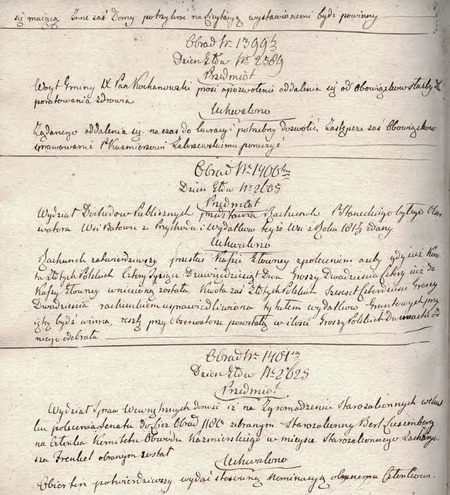 się mającą Inne zaś Domy potrzebne na licytacyą wystawionemi bydź powinny
Obrad Nr. 1399
Dzien. Głów. Nr. 2589
Przedmiot
Woyt Gminy IX Pan Kochanowski prosi o pozwolenie oddalenia się od Obowiązków służby dla
poratowania zdrowia
Uchwalono
Żądanego oddalenia się na czas do kuracyi potrzebny dozwolić, Zastępcze zaś Obowiązków
sprawowanie P. Kazimierzowi Zakrzewskiemu poruczyć
Obrad Nr. 1400
Dzien. Głów. Nr. 2605
Przedmiot
Wydział Dochodów Publicznych przedstawia Rachunek P. byłego Obser
watora Wsi z Przychodu i Wydatku teyże Wsi z Roku zdany
Uchwalono
Rachunek zatwierdziwszy przesłać Kassie Główney z poleceniem aby gdy już Kwo
ta złotych Polskich Cztery Tysiące Dziewięćdziesiąt Dwa Groszy Dwadzieścia Cztery już do
Kassy Główney wniesioną została Kwota zaś Złotych Polskich Groszy
Dwadzieścia rachunkiem usprawiedliwiona tytułem wydatków Gruntowych przy
iętą bydź winna, resztę przy Obserwatorze pozostałą w ilości Groszy Polskich Dwanaście od
niego odebrała
Obrad Nr. 1401
Dzien. Głów. Nr. 2625
Przedmiot
Wydział Spraw Wewnętrznych donosi iż na Zgromadzeniu Starozakonnych w skut
ku polecenia Senatu do Licz. Obrad 1100 zebranym Starozakonny Berl Luxemburg
na Członka Komitetu Obwodu Kazimierskiego w mieysce Starozakonnego Zachary
sza Frenkel obranym został
Uchwalono
Obiór ten potwierdziwszy wydać stosowną Nominacyą obranemu Członkowi.